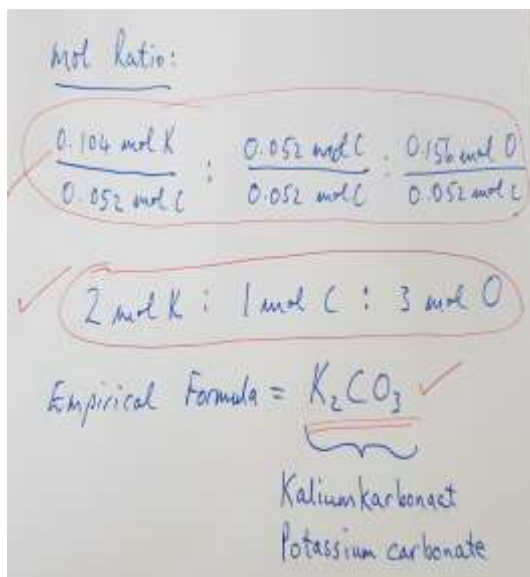 Mol Ratio:
0.104 mol K : 0.052 mol C : 0.156 mol O
0.052 mol C 0.052 mol C 0.052 mol C
2 mol K : 1 mol C : 3 mol O
Empirical Formula = K₂CO₃
Kaliumkarbonaat
Potassium carbonate